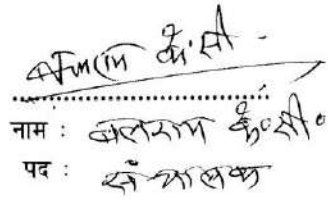 बलराम के.सी.
नाम : बलराम के०सी०
पद : संचालक